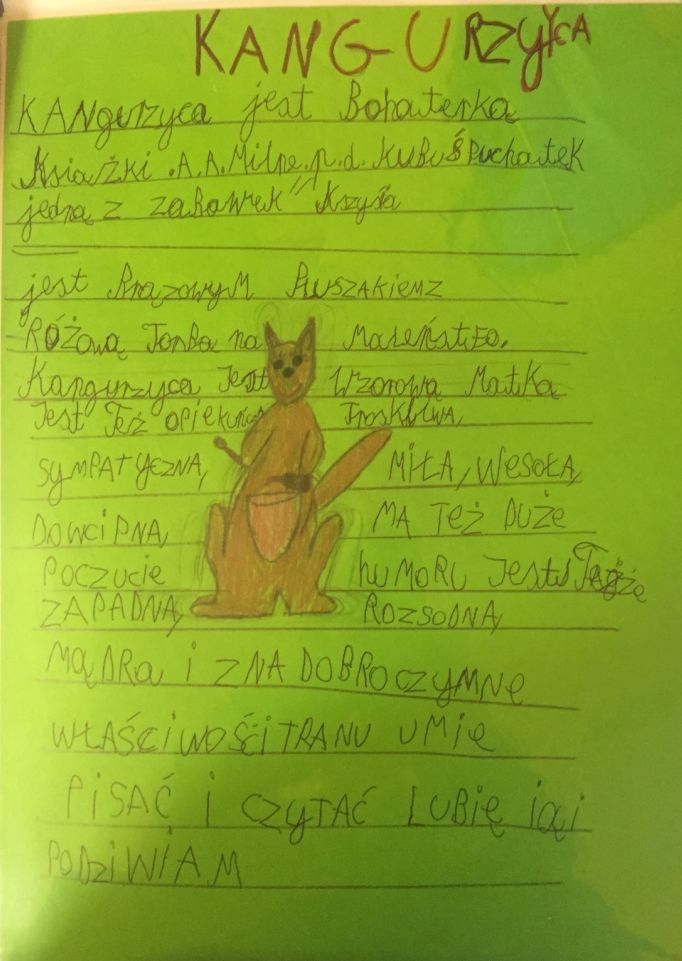 KANGURZYCA
KANgurzyca jest Bohaterką
Książki .A.A.Milne.p.d. KUBUŚ Puchatek
jedną z zabawek" Kszysia
jest BrązowyM PluszakiemZ
RÓŻOWĄ TorBa na Maleństwo.
Kangurzyca Jest Wzorową Matką
Jest Też opiekuńcza Troskliwa,
SYMPATYCZNA, MIŁA, WESOŁA,
DOWCIPNA, MA TEŻ DUŻE
POCZUCIE HUMORU Jest Też
ZAPADNA, ROZSODNA,
MĄDRA i ZNA DOBROCZYMNE
WŁAŚCIWOŚCI TRANU UMIE
PISAĆ i CZYTAĆ LUBIĘ iĄ i
PODZIWIAM